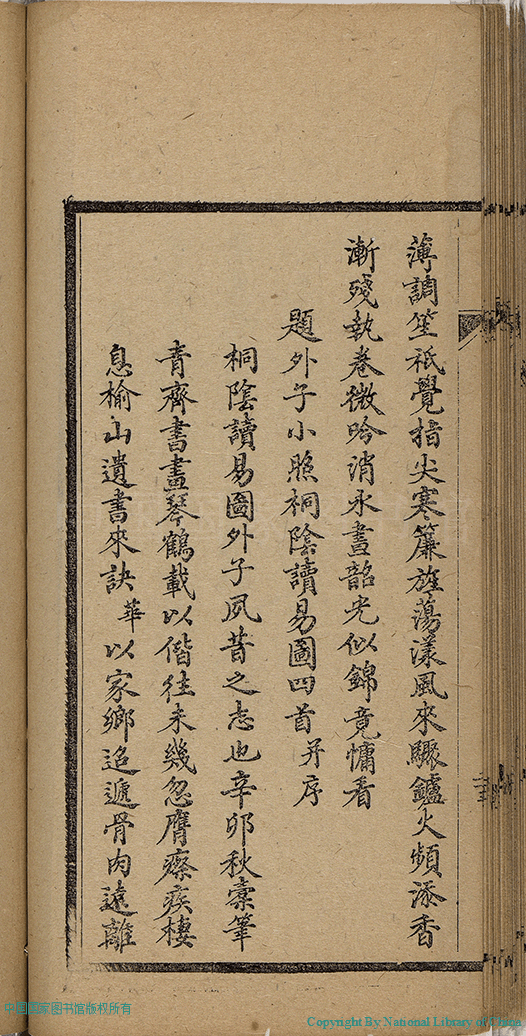 薄調笙祗覺指尖寒簾旌蕩漾風來驟鑪火頻添香
漸殘執卷微吟消永晝韶光似錦竟慵看
題外子小照桐陰讀易圖四首并序
桐陰讀易圖外子夙昔之志也辛卯秋橐筆
青齊書畫琴鶴載以偕往未幾忽膺瘵疾棲
息榆山遺書來訣華以家鄉迢遞骨肉遠離
中国国家图书馆版权所有
Copyright By National Library of China